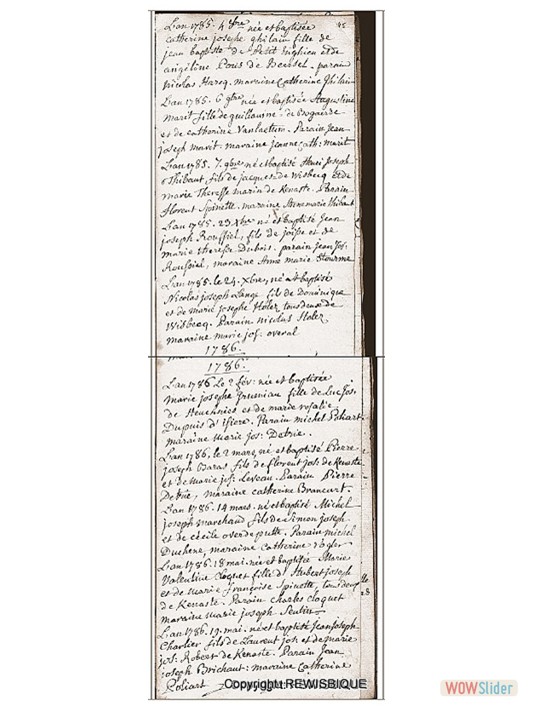 L'an 1785. 4 9bre née et baptisée 45
catherine joseph ghilain fille de
jean baptiste de Petit Enghien et de
angéline Paris de Beersel. parain
nicolas Harcq. maraine Catherine Ghilain
L'an 1785. 6 9bre née et baptisée Augustine
marit fille de guillaume de Bogaerde
et de catherine Vanlaetem. Parain jean
joseph marit. maraine jeanne cath: marit
L'an 1785. 7. 9bre né et baptisé Henri Joseph
Thibaut, fils de jacques de wisbecq et de
marie Theresse marin de Kenaste. Parain
florent Spinette. maraine Anne marie thibaut
L'an 1785. 23 Xbre né et baptisé Jean
joseph Rousfiel, fils de et de
marie therese Dubois. parain jean jos:
Rousfiel, maraine Anne marie
L'an 1785. le 24. Xbre, né et baptisé
Nicolas joseph Langé fil de Dominique
et de marie josephe Holez tous deux de
Wisbecq. Parain nicolas Holez
maraine marie jos: overal
1786.
1786.
L'an 1786 Le 2 fév: née et baptisée
marie josephe fille de Luc Jos.
de Steuchnies et de marie rosalie
Dupuis d'ifiore. Parain michel Poliart.
maraine marie jos: Detrie.
L'an 1786. le 2 mars, né et baptisé Pierre
joseph Baras fils de florent jos: de Kenaste
et de marie jos: Leveau. Parain Pierre
Detrie, maraine catherine Brancart.
L'an 1786. 14 mars. né et baptisé Michel
joseph marchand fils de Simon joseph
et de cécile overdeputte. Parain michel
Duchene, maraine catherine
L'an 1786. 18 mai. née et baptisée Marie
Valentine Cloquet fille d'Hubert joseph
et de marie françoise Spinette, tous deux
de Kenaste. Parain charles cloquet
maraine marie joseph Seutin
L'an 1786. 19. mai. né et baptisé Jean Joseph
Chartier fils de Laurent jos: et de marie
jos: Robert de Kenaste. Parain Jean
joseph Brichaut: maraine Catherine
Poliart
Copyright REWISBIQUE
WOWSlider